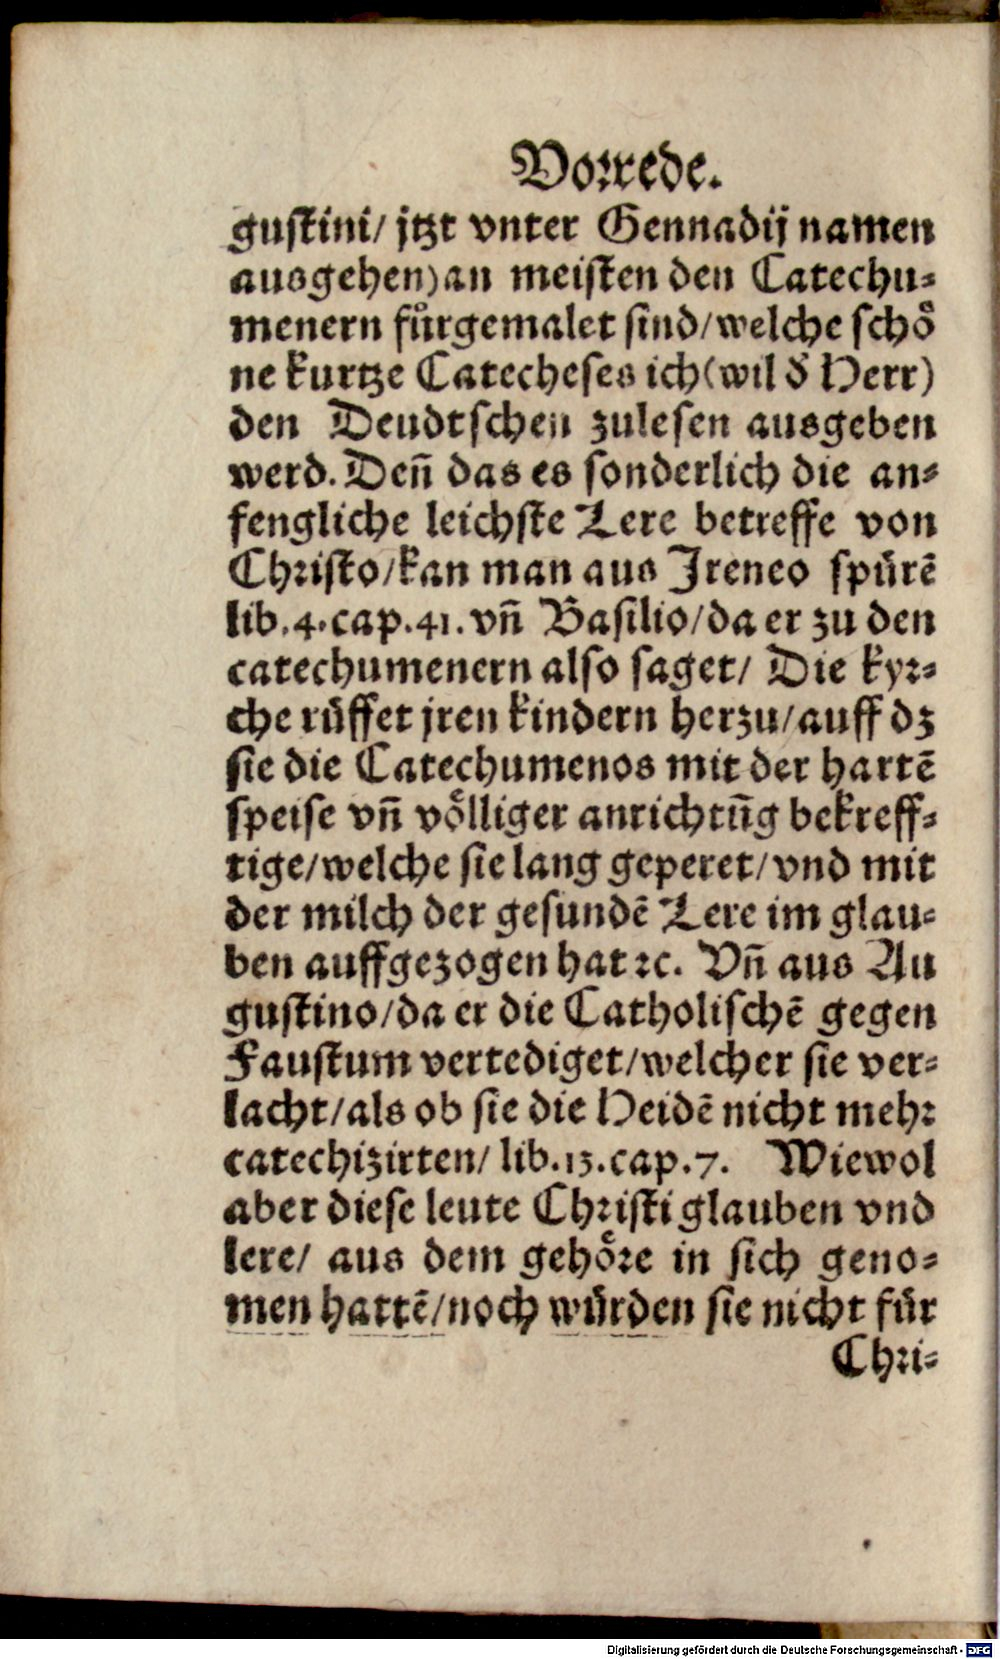 Vorrede.
gustini/ jtzt vnter Gennadij namen
ausgehen) an meisten den Catechu-
menern fuͤrgemalet sind/welche schoͤ
ne kurtze Catecheses ich (wil d̕ Herr)
den Deudtschen zulesen ausgeben
werd. Deñ das es sonderlich die an-
fengliche leichste Lere betreffe von
Christo/kan man aus Ireneo spuͤrē
lib. 4. cap. 41. vñ Basilio/da er zu den
catechumenern also saget/ Die kyr-
che ruͤffet jren kindern herzu/auff dz
sie die Catechumenos mit der hartē
speise vñ voͤlliger anrichtūg bekreff-
tige/welche sie lang geperet/vnd mit
der milch der gesundē Lere im glau-
ben auffgezogen hat ꝛc. Vñ aus Au
gustino/da er die Catholischē gegen
Faustum vertediget/welcher sie ver-
lacht/als ob sie die Heidē nicht mehr
catechizirten/ lib. 13. cap. 7. Wiewol
aber diese leute Christi glauben vnd
lere/ aus dem gehoͤre in sich geno-
men hattē/noch wuͤrden sie nicht fuͤr
Chri-
Digitalisierung gefördert durch die Deutsche Forschungsgemeinschaft - DFG